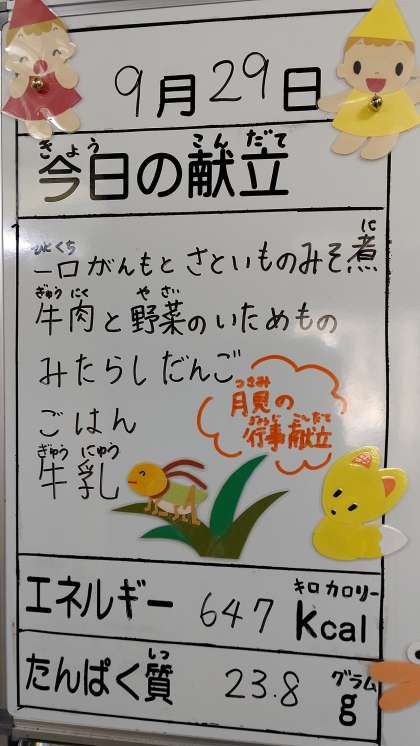 9月29日
きょう こんだて
今日の献立
ひとくち に
一口がんもとさといものみそ煮
ぎゅうにく やさい
牛肉と野菜のいためもの
みたらしだんご
つきみ
月見の
ぎょうじ こんだて
行事献立
ごはん
ぎゅうにゅう
牛乳
エネルギー 647 キロカロリー
kcal
しつ
たんぱく質 23.8 グラム
g